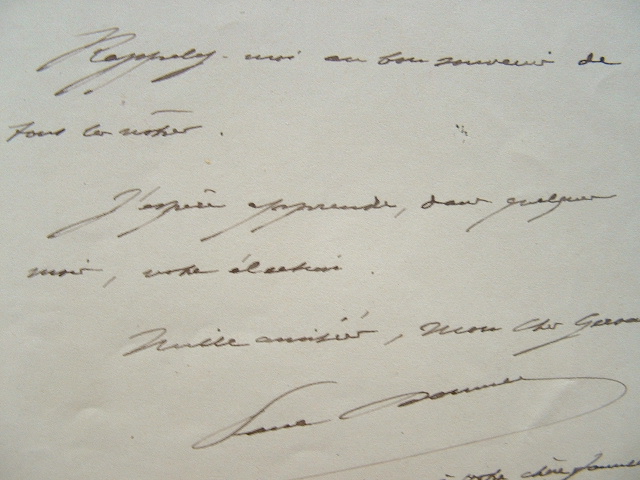 Rappelez-moi au bon souvenir de
tous les nôtres.
J'espère apprendre, dans quelques
mois, votre élection.
Mille amitiés, Mon cher
Paul Doumer
à votre chère famille